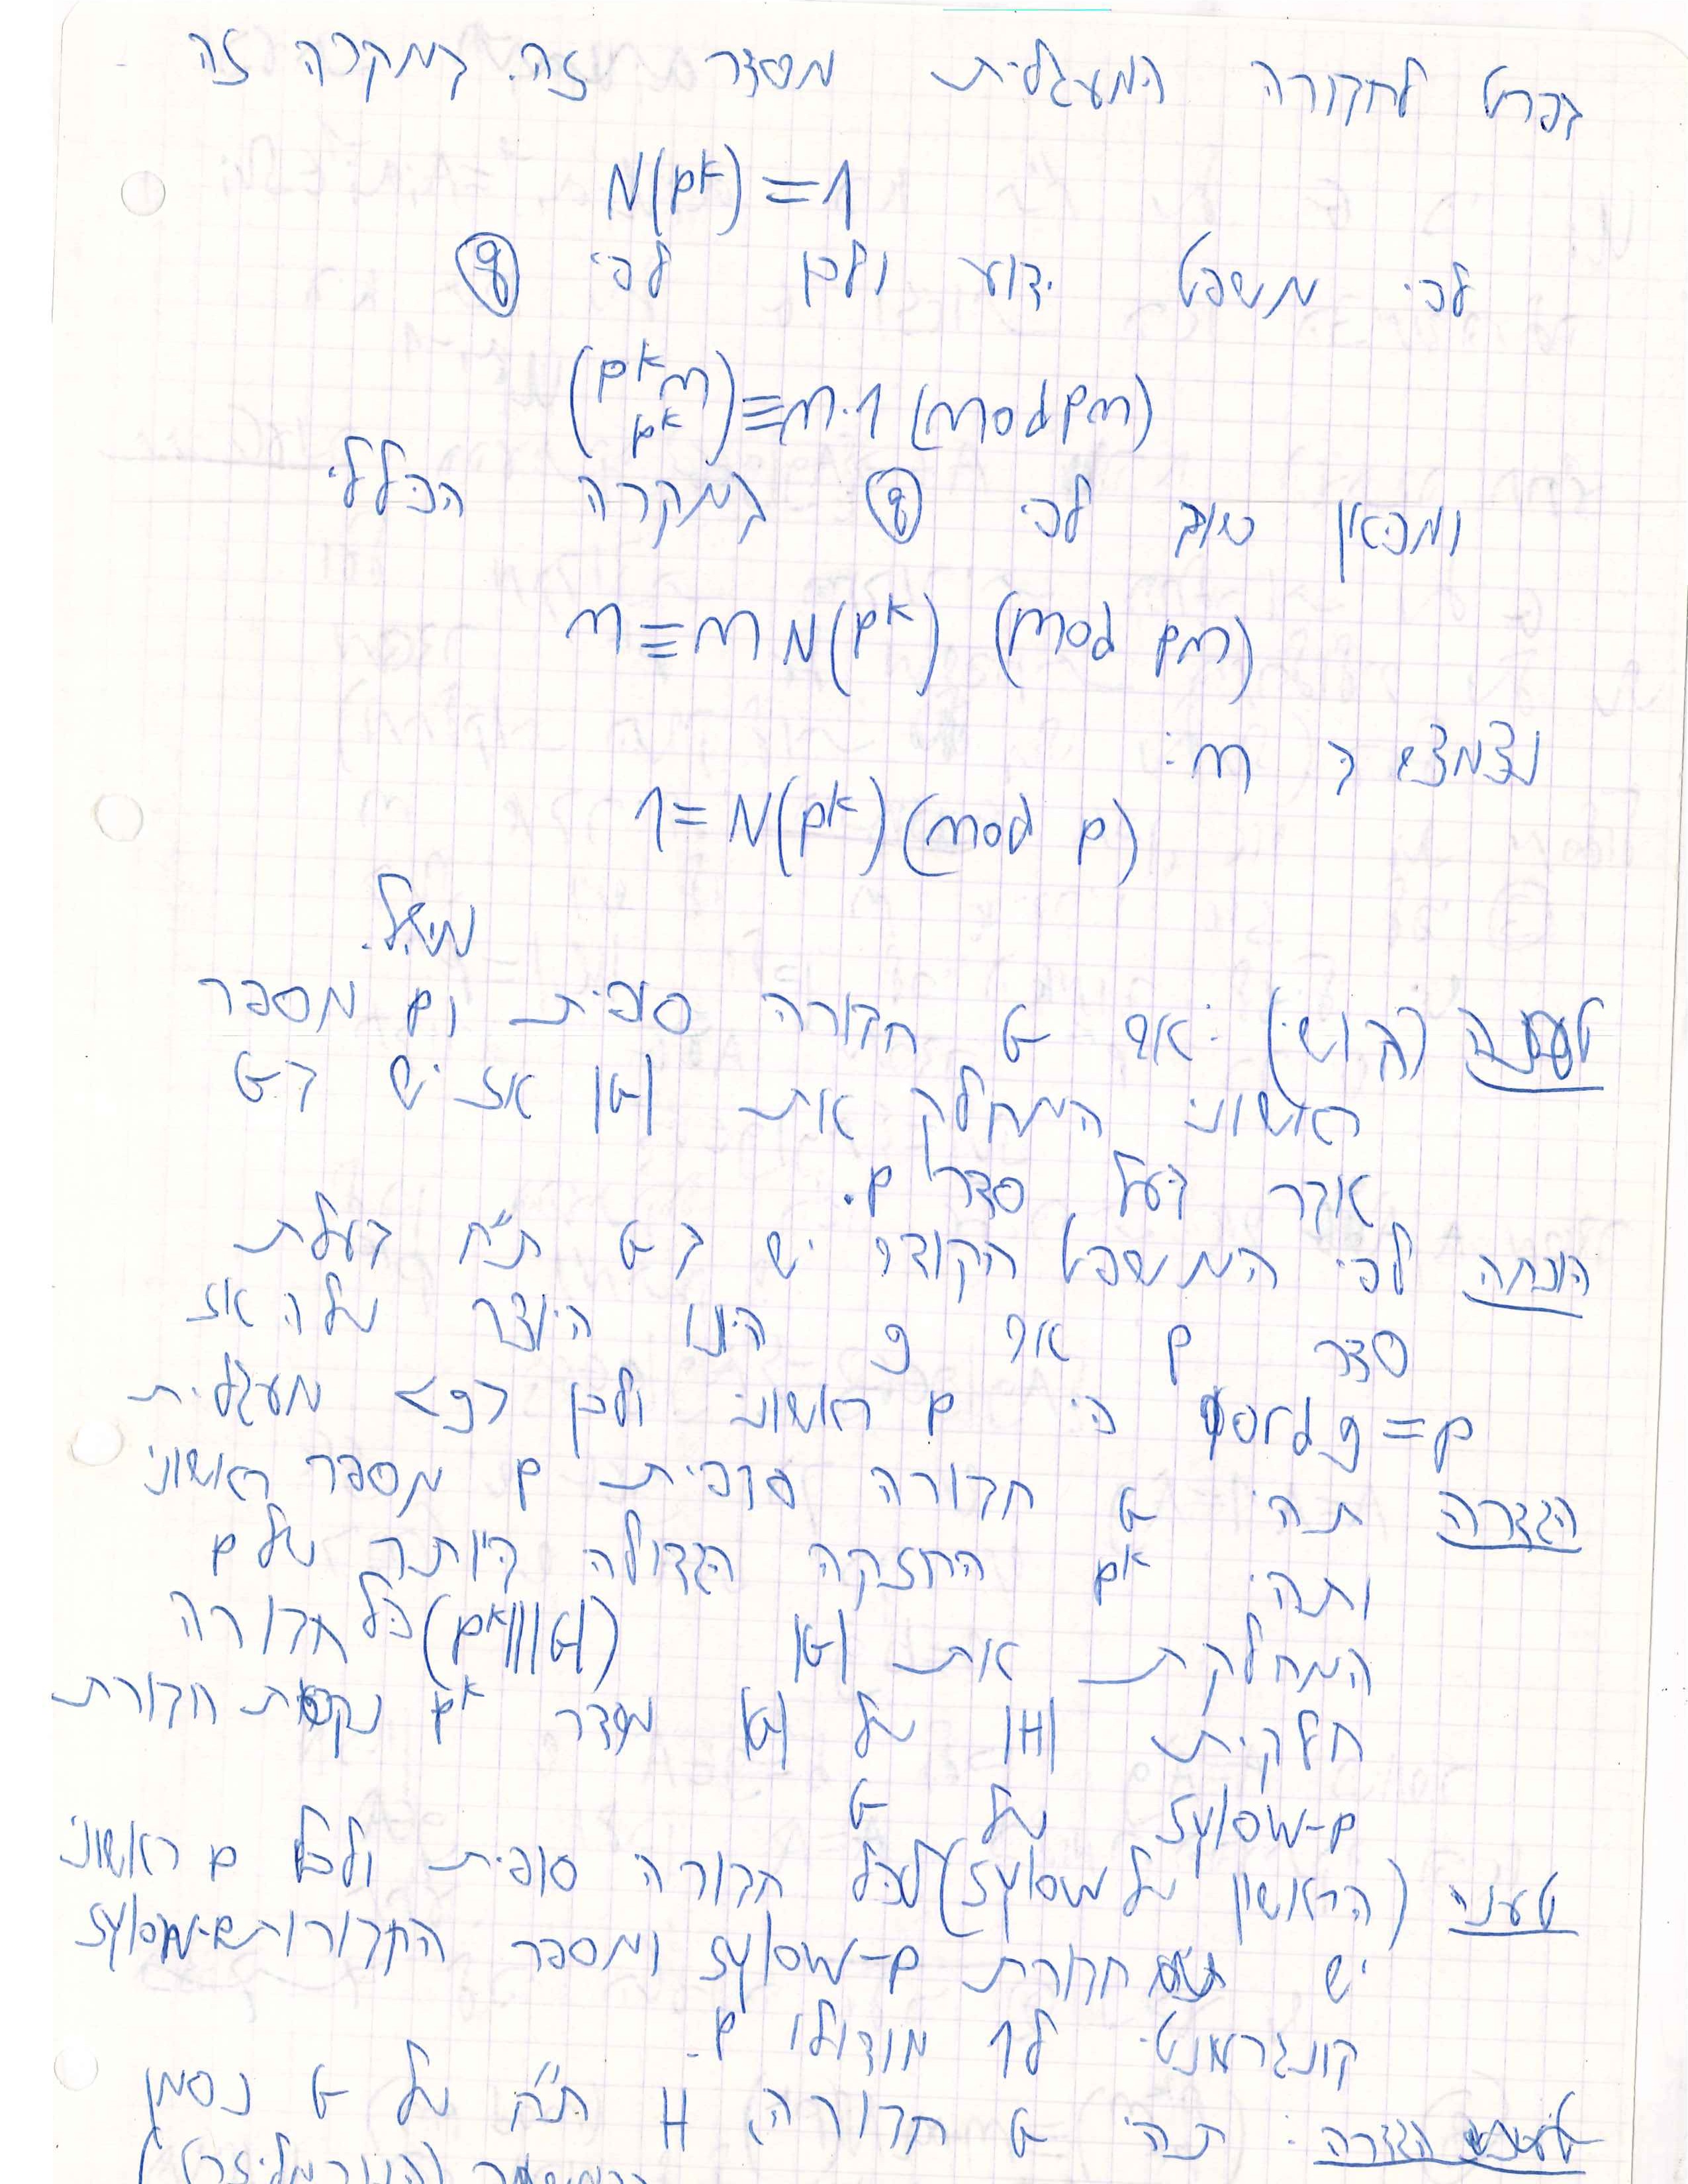 בפרט לחבורה המעגלית מסדר זה. במקרה זה
N(p^k)=1
לפי משפט ידוע ולכן לפי
(p^k m p^k)≡m·1 (mod pm)
ומכאן שוב לפי במקרה הכללי
m≡m N(p^k) (mod pm)
נצמצם ב m:
1=N(p^k)(mod p)
מש"ל.
טענה (קושי): אם G חבורה סופית ו p מספר
ראשוני המחלק את |G| אז יש ב G
אבר בעל סדר p.
הוכחה לפי המשפט הקודם יש ב G ת"ח בעלת
סדר p אם g הינו היוצר שלה אז
ord g=p כי p ראשוני ולכן מעגלית
הגדרה תהי G חבורה סופית p מספר ראשוני
ותהי p^k החזקה הגדולה ביותר של p
המחלקת את |G| (p^k|||G|) כל חבורה
חלקית |H| של |G| מסדר p^k נקראת חבורת
p-sylow של G
טענה (הראשון של sylow) לכל חבורה סופית ולכל p ראשוני
יש חבורת p-sylow ומספר החבורות p-sylow
קונגרואנטי ל 1 מודולו p.
הגדרה: תהי G חבורה, H ת"ח של G נסמן